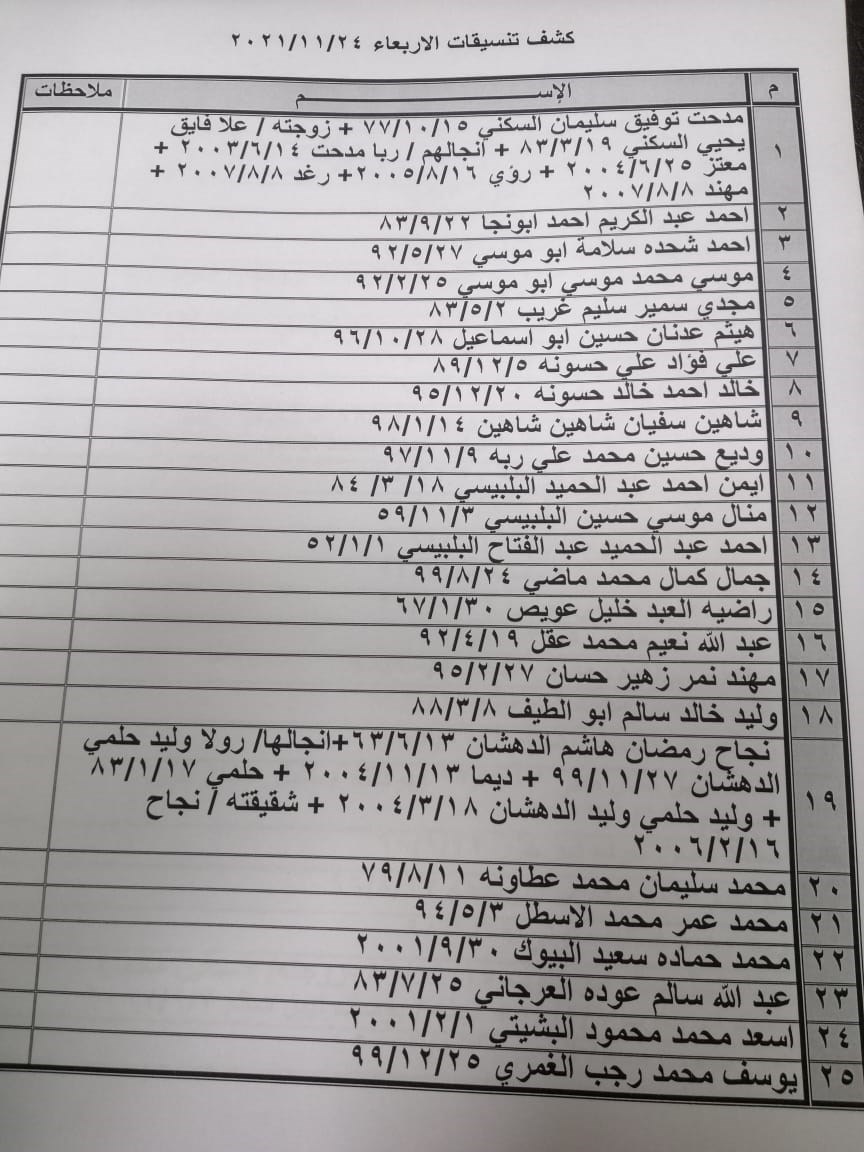 كشف تنسيقات الاربعاء ٢٠٢١/١١/٢٤
م الإســـــــــم ملاحظات
١ مدحت توفيق سليمان السكني ٧٧/١٠/١٥ + زوجته / علا فايق
يحيي السكني ٨٣/٣/١٩ + انجالهم / ربا مدحت ٢٠٠٣/٦/١٤ +
معتز ٢٠٠٤/٦/٢٥ + رؤي ٢٠٠٥/٨/١٦+ رغد ٢٠٠٧/٨/٨ +
مهند ٢٠٠٧/٨/٨
٢ احمد عبد الكريم احمد ابونجا ٨٣/٩/٢٢
٣ احمد شحده سلامة ابو موسي ٩٢/٥/٢٧
٤ موسي محمد موسي ابو موسي ٩٢/٢/٢٥
٥ مجدي سمير سليم غريب ٨٣/٥/٢
٦ هيثم عدنان حسين ابو اسماعيل ٩٦/١٠/٢٨
٧ علي فؤاد علي حسونه ٨٩/١٢/٥
٨ خالد احمد خالد حسونه ٩٥/١٢/٢٠
٩ شاهين سفيان شاهين شاهين ٩٨/١/١٤
١٠ وديع حسين محمد علي ربه ٩٧/١١/٩
١١ ايمن احمد عبد الحميد البلبيسي ١٨/ ٣/ ٨٤
١٢ منال موسي حسين البلبيسي ٥٩/١١/٣
١٣ احمد عبد الحميد عبد الفتاح البلبيسي ٥٢/١/١
١٤ جمال كمال محمد ماضي ٩٩/٨/٢٤
١٥ راضيه العبد خليل عويص ٦٧/١/٣٠
١٦ عبد الله نعيم محمد عقل ٩٢/٤/١٩
١٧ مهند نمر زهير حسان ٩٥/٢/٢٧
١٨ وليد خالد سالم ابو الطيف ٨٨/٣/٨
١٩ نجاح رمضان هاشم الدهشان ٦٣/٦/١٣+انجالها/ رولا وليد حلمي
الدهشان ٩٩/١١/٢٧ + ديما ٢٠٠٤/١١/١٣ + حلمي ٨٣/١/١٧
+ وليد حلمي وليد الدهشان ٢٠٠٤/٣/١٨ + شقيقته / نجاح
٢٠٠٦/٢/١٦
٢٠ محمد سليمان محمد عطاونه ٧٩/٨/١١
٢١ محمد عمر محمد الاسطل ٩٤/٥/٣
٢٢ محمد حماده سعيد البيوك ٢٠٠١/٩/٣٠
٢٣ عبد الله سالم عوده العرجاني ٨٣/٧/٢٥
٢٤ اسعد محمد محمود البشيتي ٢٠٠١/٢/١
٢٥ يوسف محمد رجب الغمري ٩٩/١٢/٢٥